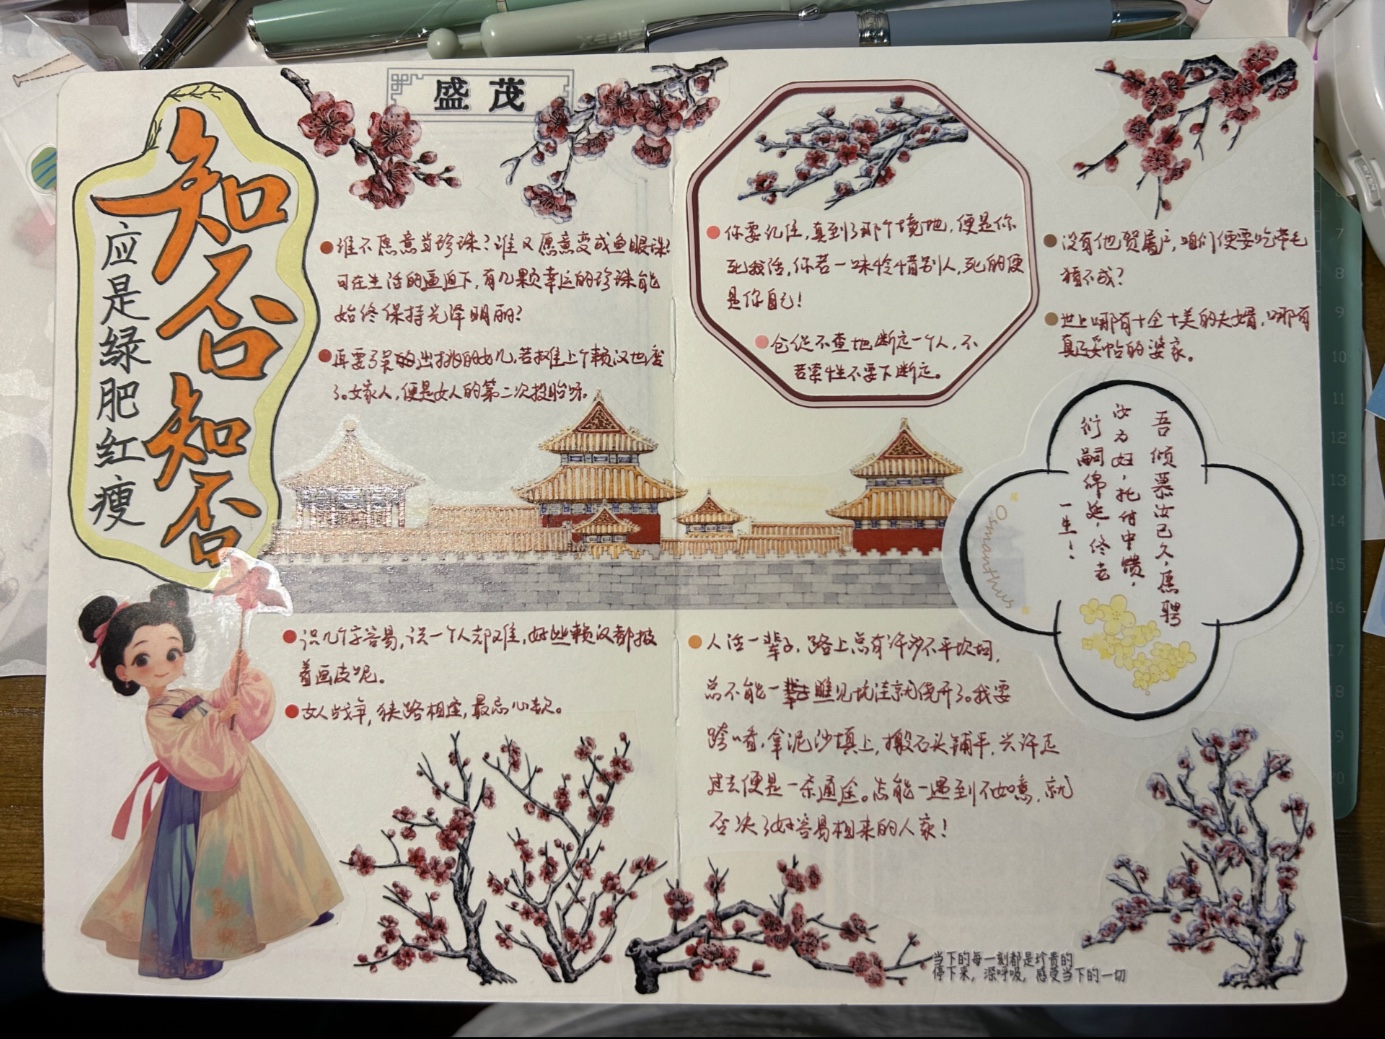 盛茂
知否知否
应是绿肥红瘦
谁不愿意当珍珠?谁又愿意变成鱼眼珠?
可在生活的逼迫下,有几颗幸运的珍珠能
始终保持光泽明丽?
再要了呈的出挑的女儿,若摊上个赖汉地废
了。女家人,便是女人的第二次投胎呀。
你要记住,真到了那个境地,便是你
死我活,你若一味怜惜别人,死的便
是你自己!
仓促不查地断定一个人,不
若索性不要下断定。
没有他贺屠户,咱们便要吃带毛
猪不成?
世上哪有十全十美的夫婿,哪有
真正妥帖的婆家。
吾倾慕汝已久,愿聘
汝为妇,托付中馈,
衍嗣绵延,终老
一生!
Osmanthus
识几个字容易,识一个人却难,好些赖汉都披
着画皮呢。
女人战争,狭路相逢,最忌心软。
人活一辈子,路上总有许多不平坎坷,
总不能一瞧见坑洼就绕开了。我要
跨唷,拿泥沙填上,搬石头铺平,兴许走
过去便是一条通途。怎能一遇到不如意,就
否决了好容易相来的人家!
当下的每一刻都是珍贵的
停下来,深呼吸,感受当下的一切
7
8
9
10
11
12
13
14
15
16
17
18
19
20